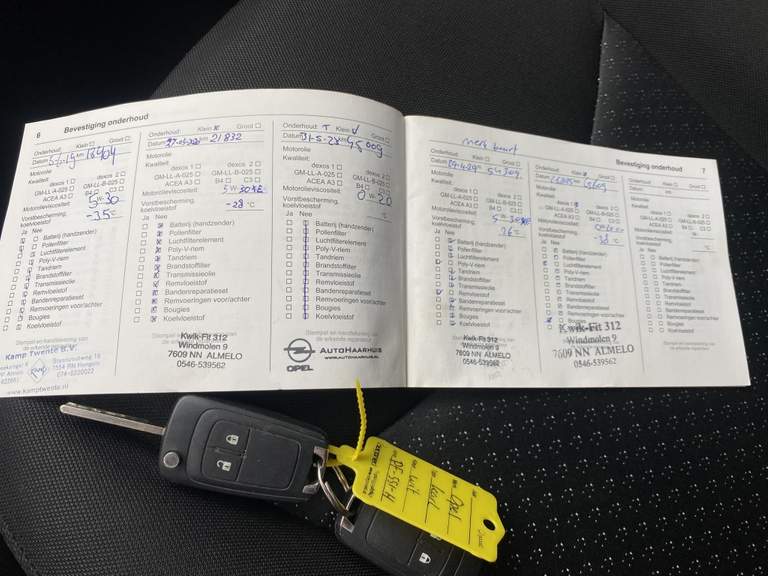 6 Bevestiging onderhoud
Onderhoud: Klein Groot
Datum km
Motorolie
Kwaliteit: dexos 1 dexos 2
GM-LL-A-025 GM-LL-B-025
ACEA A3 B4 C3
Motorolieviscositeit: 5 W-30
Vorstbescherming, koelvloeistof -35 °C
Ja Nee
Batterij (handzender)
Pollenfilter
Luchtfilterelement
Poly-V-riem
Tandriem
Brandstoffilter
Transmissieolie
Remvloeistof
Bandenreparatieset
Remvoeringen voor/achter
Bougies
Koelvloeistof
Kamp Twente B.V.
7554 RN Hengelo
074-8220022
www.kamptwente.nl
Onderhoud: Klein Groot
Datum km 21832
Motorolie
Kwaliteit: dexos 1 dexos 2
GM-LL-A-025 GM-LL-B-025
ACEA A3 B4 C3
Motorolieviscositeit: 5 W 30
Vorstbescherming, koelvloeistof -28 °C
Ja Nee
Batterij (handzender)
Pollenfilter
Luchtfilterelement
Poly-V-riem
Tandriem
Brandstoffilter
Transmissieolie
Remvloeistof
Bandenreparatieset
Remvoeringen voor/achter
Bougies
Koelvloeistof
Kwik-Fit 312
Windmolen 9
7609 NN ALMELO
0546-539562
Onderhoud: Klein Groot
Datum 31-5-23 km 45009
Motorolie
Kwaliteit: dexos 1 dexos 2
GM-LL-A-025 GM-LL-B-025
ACEA A3 B4 C3
Motorolieviscositeit: 0 W 20
Vorstbescherming, koelvloeistof °C
Ja Nee
Batterij (handzender)
Pollenfilter
Luchtfilterelement
Poly-V-riem
Tandriem
Brandstoffilter
Transmissieolie
Remvloeistof
Bandenreparatieset
Remvoeringen voor/achter
Bougies
Koelvloeistof
Stempel en handtekening van de erkende reparateur
OPEL
AUTOHAARHUIS
WWW.AUTOHAARHUIS.NL
Bevestiging onderhoud 7
beurt
Onderhoud: Klein Groot
Datum km
Motorolie
Kwaliteit: dexos 1 dexos 2
GM-LL-A-025 GM-LL-B-025
ACEA A3 B4 C3
Motorolieviscositeit: 5 -30
Vorstbescherming, koelvloeistof
Ja Nee
Batterij (handzender)
Pollenfilter
Luchtfilterelement
Poly-V-riem
Tandriem
Brandstoffilter
Transmissieolie
Remvloeistof
Bandenreparatieset
Remvoeringen voor/achter
Bougies
Koelvloeistof
Kwik-Fit 312
Windmolen 9
7609 NN ALMELO
0546-539562
Onderhoud: Klein Groot
Datum
Motorolie
Kwaliteit: dexos 1 dexos 2
GM-LL-A-025 GM-LL-B-025
ACEA A3 B4 C3
Motorolieviscositeit:
Vorstbescherming, koelvloeistof °C
Ja Nee
Batterij (handzender)
Pollenfilter
Luchtfilterelement
Poly-V-riem
Tandriem
Brandstoffilter
Transmissieolie
Remvloeistof
Bandenreparatieset
Remvoeringen voor/achter
Bougies
Koelvloeistof
Kwik-Fit 312
Windmolen 9
7609 NN ALMELO
0546-539562
Onderhoud: Klein Groot
Datum km
Motorolie
Kwaliteit: dexos 1 dexos 2
GM-LL-A-025 GM-LL-B-025
ACEA A3 B4 C3
Motorolieviscositeit:
Vorstbescherming, koelvloeistof °C
Ja Nee
Batterij (handzender)
Pollenfilter
Luchtfilterelement
Poly-V-riem
Tandriem
Brandstoffilter
Transmissieolie
Remvloeistof
Bandenreparatieset
Remvoeringen voor/achter
Bougies
Koelvloeistof
Opel
Karl
wit